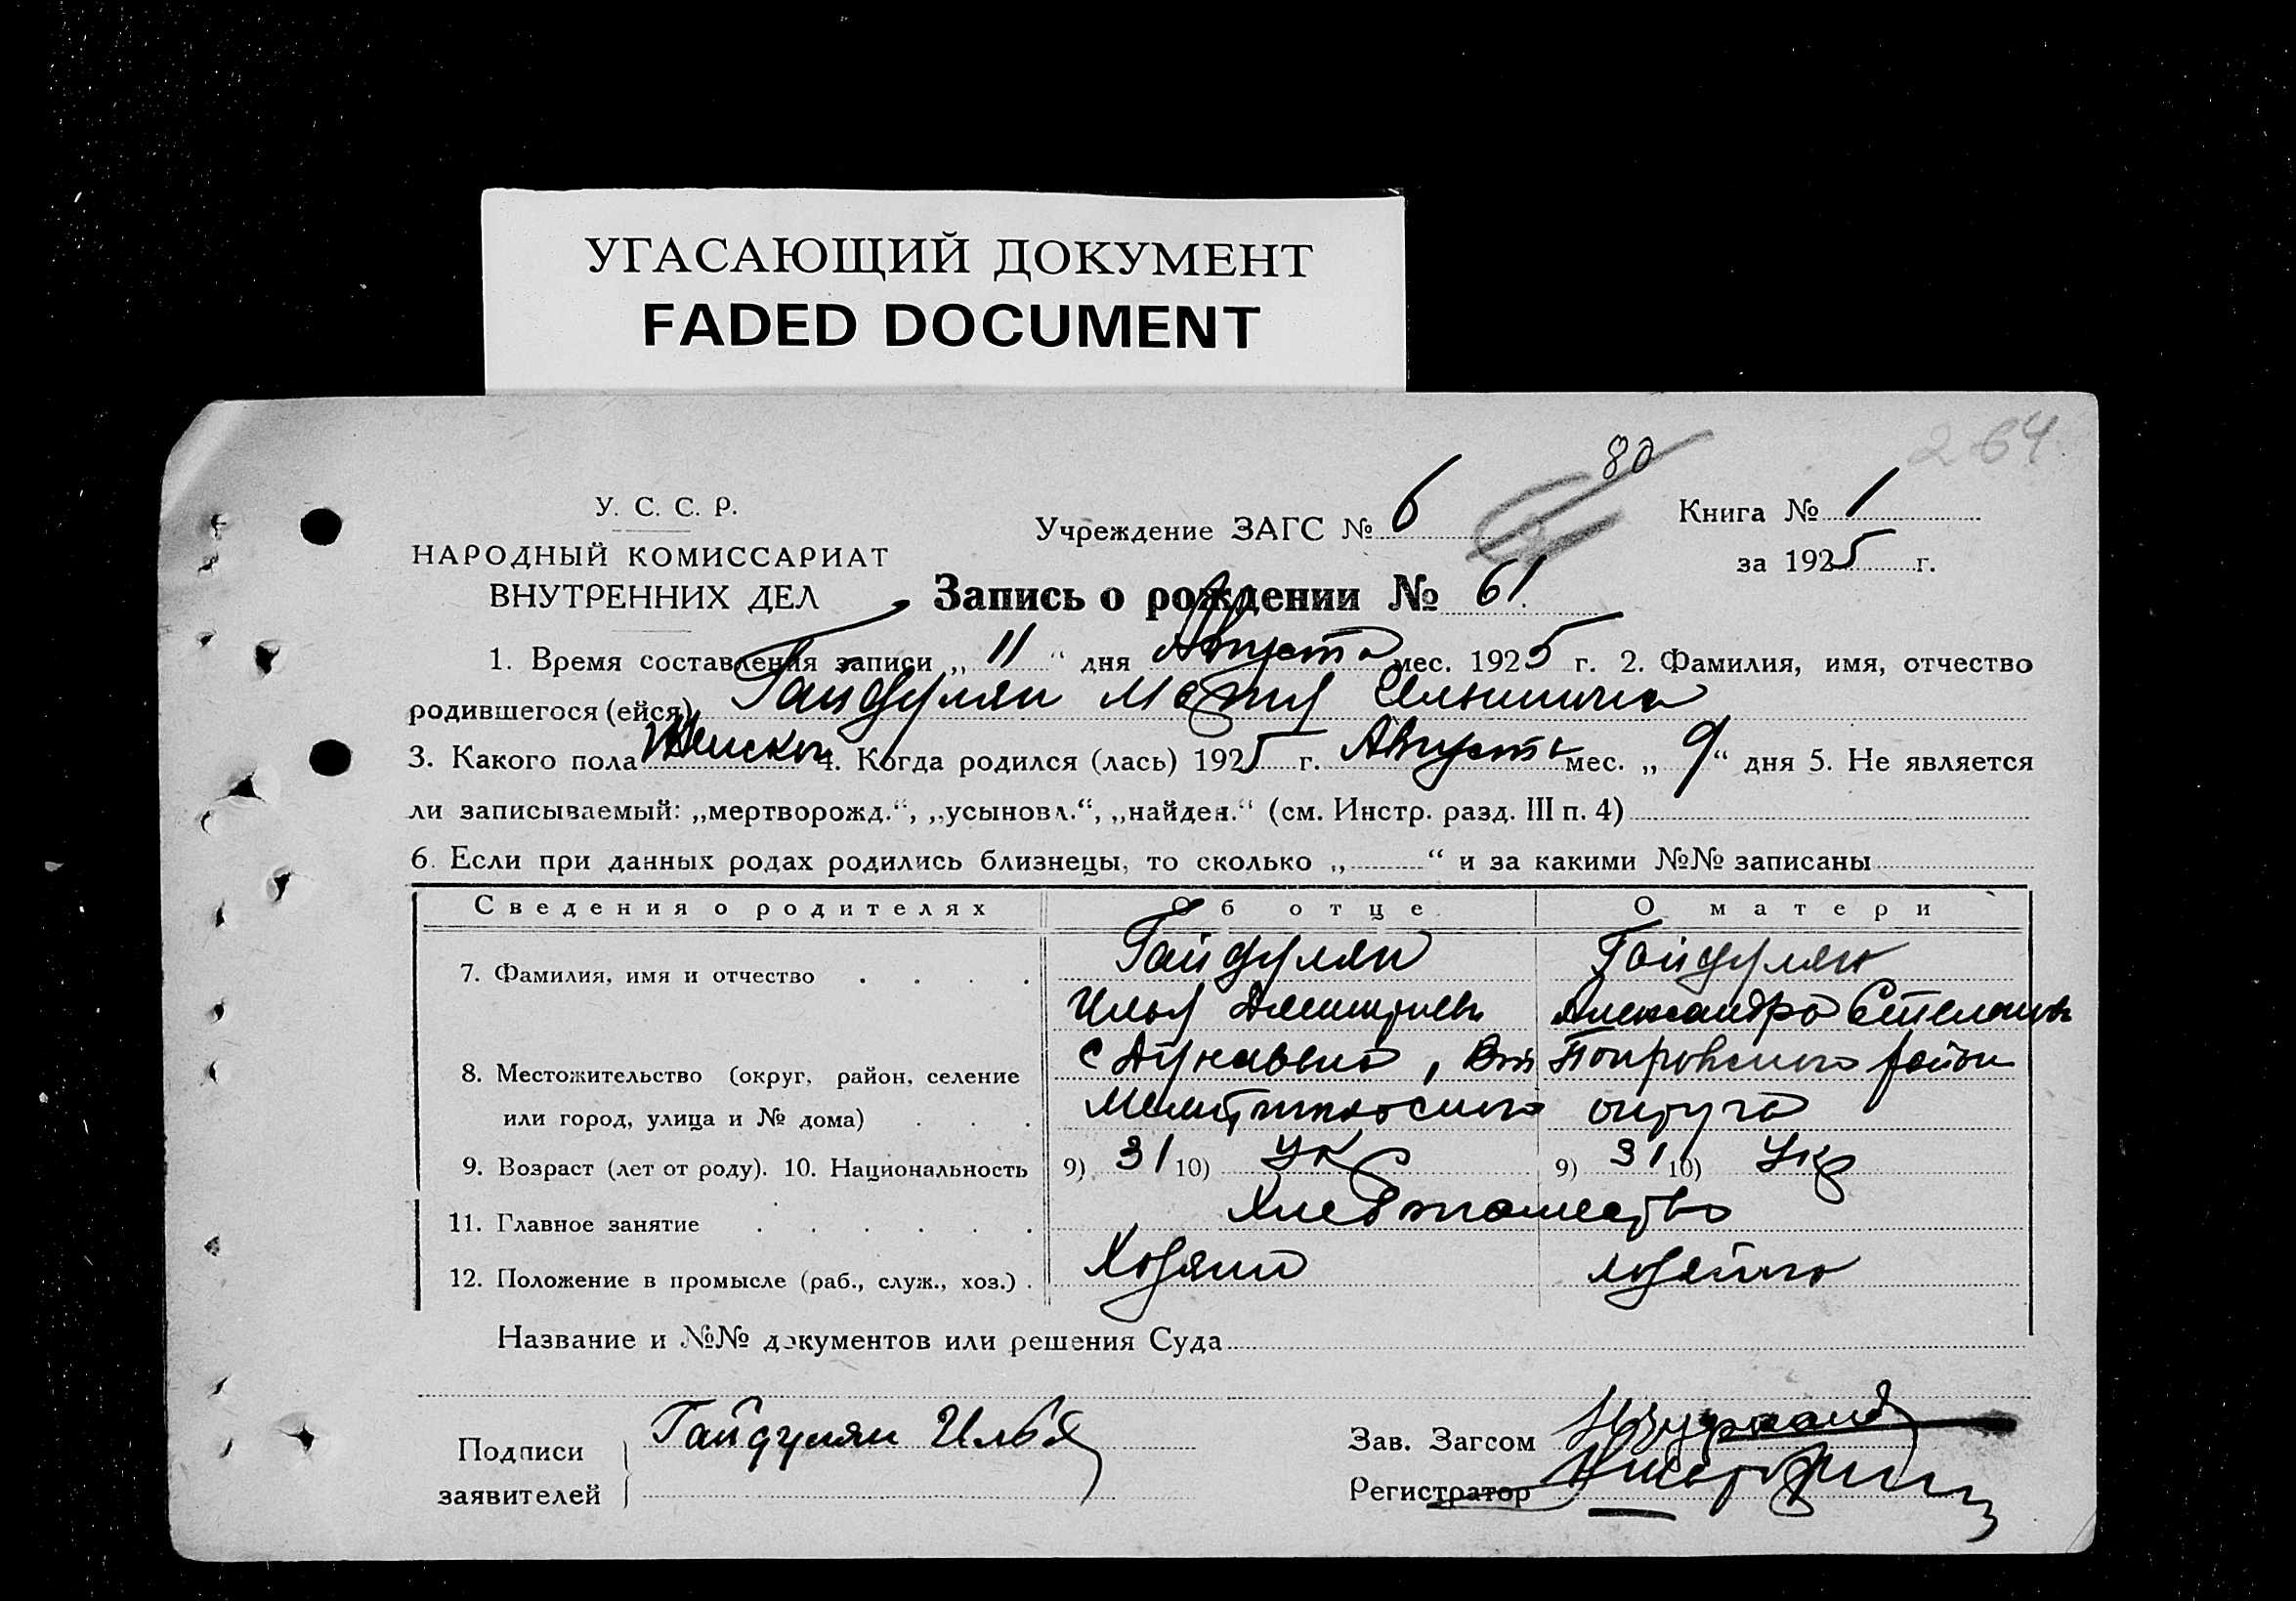 УГАСАЮЩИЙ ДОКУМЕНТ
FADED DOCUMENT
264
80
У. С. С. Р.
НАРОДНЫЙ КОМИССАРИАТ
ВНУТРЕННИХ ДЕЛ
Учреждение ЗАГС № 6
Книга № 1
за 1925 г.
Запись о рождении № 61.
1. Время составления записи „ 11 “ дня Августа мес. 1925 г. 2. Фамилия, имя, отчество
родившегося (ейся) Гайдулян Мария Ильинична
3. Какого пола Женског 4. Когда родился (лась) 1925 г. Августа мес. „ 9 “ дня 5. Не является
ли записываемый: „мертворожд.“, „усыновл.“, „найден.“ (см. Инстр. разд. III п. 4)
6. Если при данных родах родились близнецы, то сколько „ “ и за какими №№ записаны
Сведения о родителях Об отце О матери
7. Фамилия, имя и отчество Гайдулян Гайдулян
Илья Дмитриев Александра Степанов
8. Местожительство (округ, район, селение с Дунаевка, Покровского район
или город, улица и № дома) Мелитопольского округа
9. Возраст (лет от роду). 10. Национальность 9) 31 10) Укр 9) 31 10) Укр
11. Главное занятие Хлебопашество
12. Положение в промысле (раб., служ., хоз.) Хозяин хозяйка
Название и №№ документов или решения Суда
Подписи
заявителей
Гайдулян Илья
Зав. Загсом
Регистратор